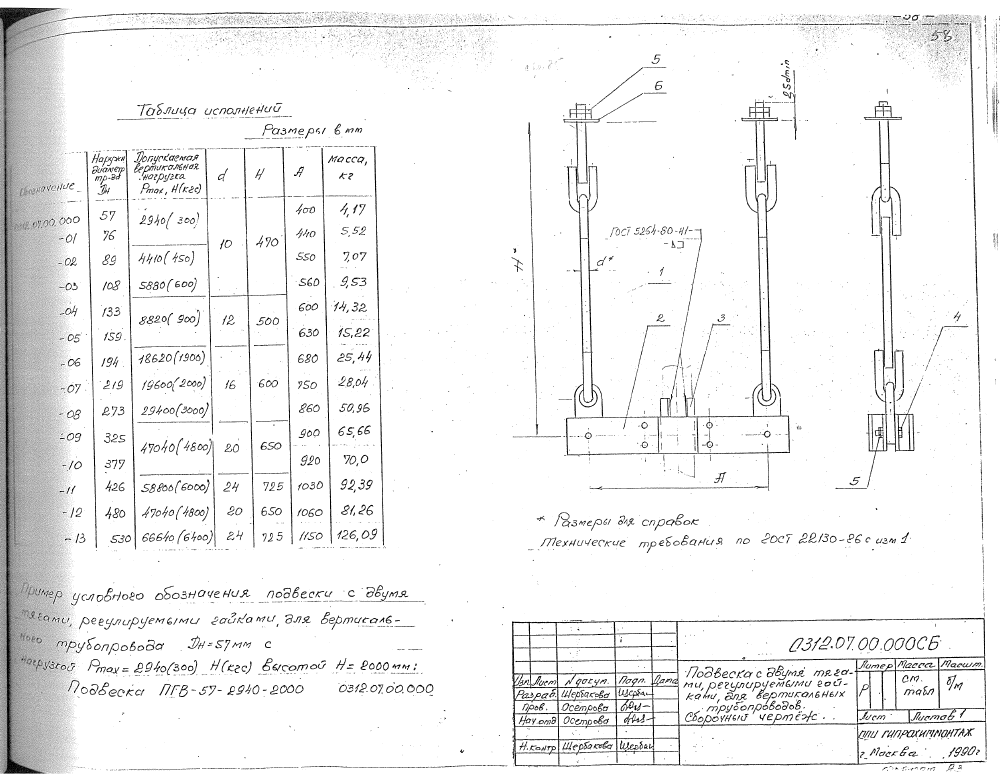 58
Таблица исполнений
Размеры в мм
Обозначение
Наружн диаметр тр-да Dн
Допускаемая вертикальная нагрузка Pmax, Н(кгс)
d
H
A
Масса, кг
0312.07.00.000 57 2940(300) 10 470 400 4,17
-01 76 440 5,52
-02 89 4410(450) 550 7,07
-03 108 5880(600) 560 9,53
-04 133 8820(900) 12 500 600 14,32
-05 159 630 15,22
-06 194 18620(1900) 16 600 680 25,44
-07 219 19600(2000) 750 28,04
-08 273 29400(3000) 860 50,96
-09 325 47040(4800) 20 650 900 65,66
-10 377 920 70,0
-11 426 58800(6000) 24 725 1030 92,39
-12 480 47040(4800) 20 650 1060 81,26
-13 530 66640(6400) 24 725 1150 126,09
Пример условного обозначения подвески с двумя
тягами, регулируемыми гайками, для вертикаль-
ного трубопровода Dн=57мм с
нагрузкой Pmax=2940(300) Н(кгс) высотой H=2000мм:
Подвеска ПГВ-57-2940-2000 0312.07.00.000
5
6
2,5d min
H*
ГОСТ 5264-80-Н1-
d*
1
2
3
4
5
A
* Размеры для справок
Технические требования по ГОСТ 22130-86 с изм 1.
0312.07.00.000СБ
Подвеска с двумя тяга-
ми, регулируемыми гай-
ками, для вертикальных
трубопроводов.
Сборочный чертёж.
Литер Масса Масшт.
Р см. табл б/м
Лист Листов 1
Изм. Лист N докум. Подп. Дата
Разраб. Щербакова
Пров. Осетрова
Нач.отд Осетрова
Н.контр Щербакова
ППИ ГИПРОХИММОНТАЖ
г. Москва 1990г